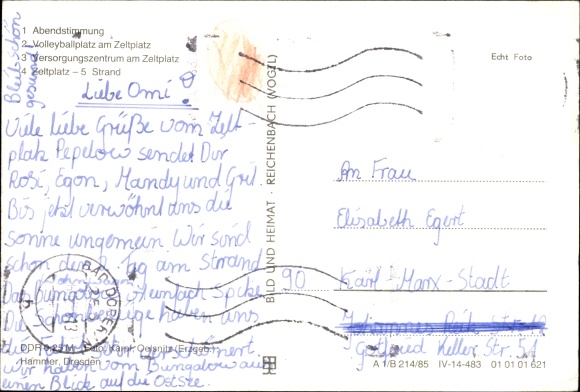 1 Abendstimmung
2 Volleyballplatz am Zeltplatz
3 Versorgungszentrum am Zeltplatz
4 Zeltplatz – 5 Strand
Bleib schön
gesund!
Liebe Omi!
Viele liebe Grüße vom Zelt-
platz Pepelow sendet Dir
Rosi, Egon, Mandy und Gril.
Bis jetzt verwöhnt uns die
sonne ungemein. Wir sind
schon den Tag am Strand
Das Bungalow ist einfach Spitze
Die haben uns
wir haben vom Bungalow aus
einen Blick auf die Ostsee.
BAD DOBERAN
DDR 0,25 M Foto: Kampf, Oelsnitz (Erzgeb.)
Hammer, Dresden
BILD UND HEIMAT · REICHENBACH (VOGTL)
Echt Foto
An Frau
Elisabeth Egert
90 Karl-Marx-Stadt
Gottfried Keller Str. 51
A 1/B 214/85 IV-14-483 01 01 01 621